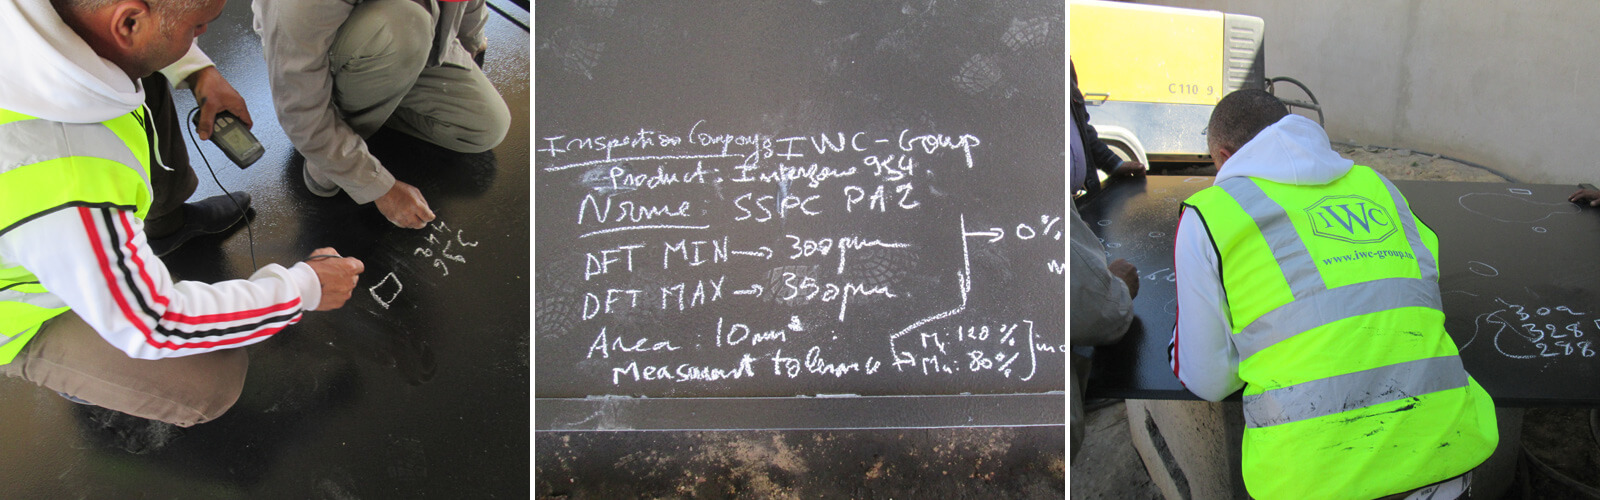 Inspection Company: IWC-Group
Product: Interzone 954.
Norme: SSPC PA2
DFT MIN → 300µm
DFT MAX → 350µm
Area: 10mm²
Measurment tolerance
→ 0%
M: 120%
Mn: 80%
C 110 9
IWC
www.iwc-group.
302
328
288